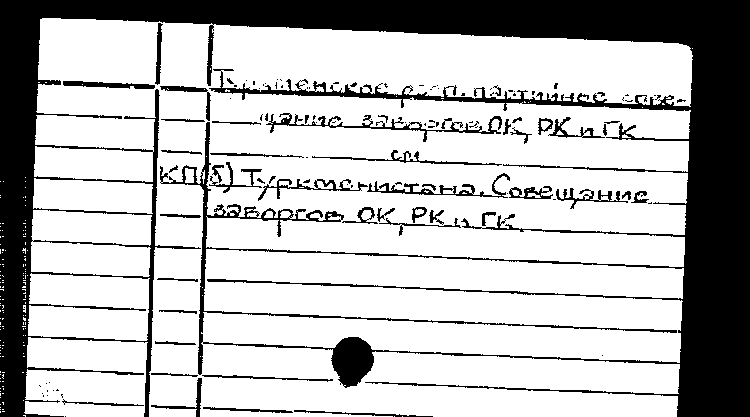 Туркменское респ. партийное сове-
щание заворгов ОК, РК и ГК
см
КП(б) Туркменистана. Совещание
заворгов ОК, РК и ГК.